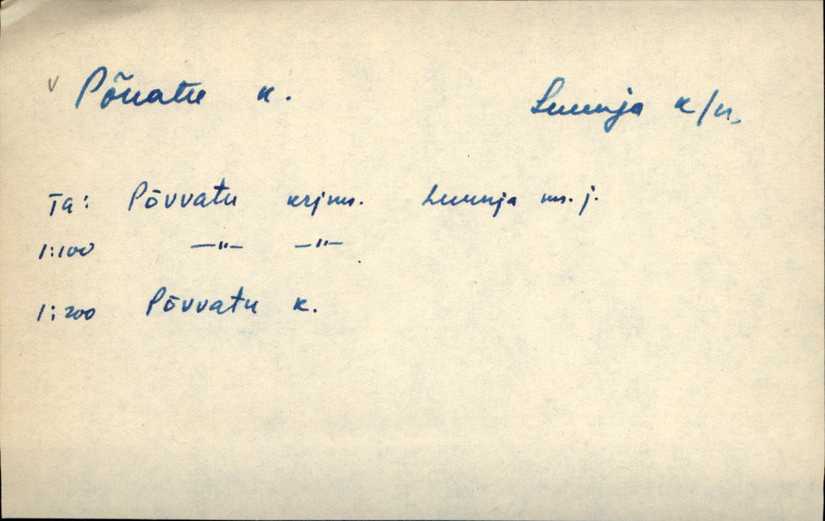 v Põvatu k. Luunja k/n.
Ta: Põvvatu krjms. Luunja ms. j.
1:100 —"— —"—
1:200 Põvvatu k.